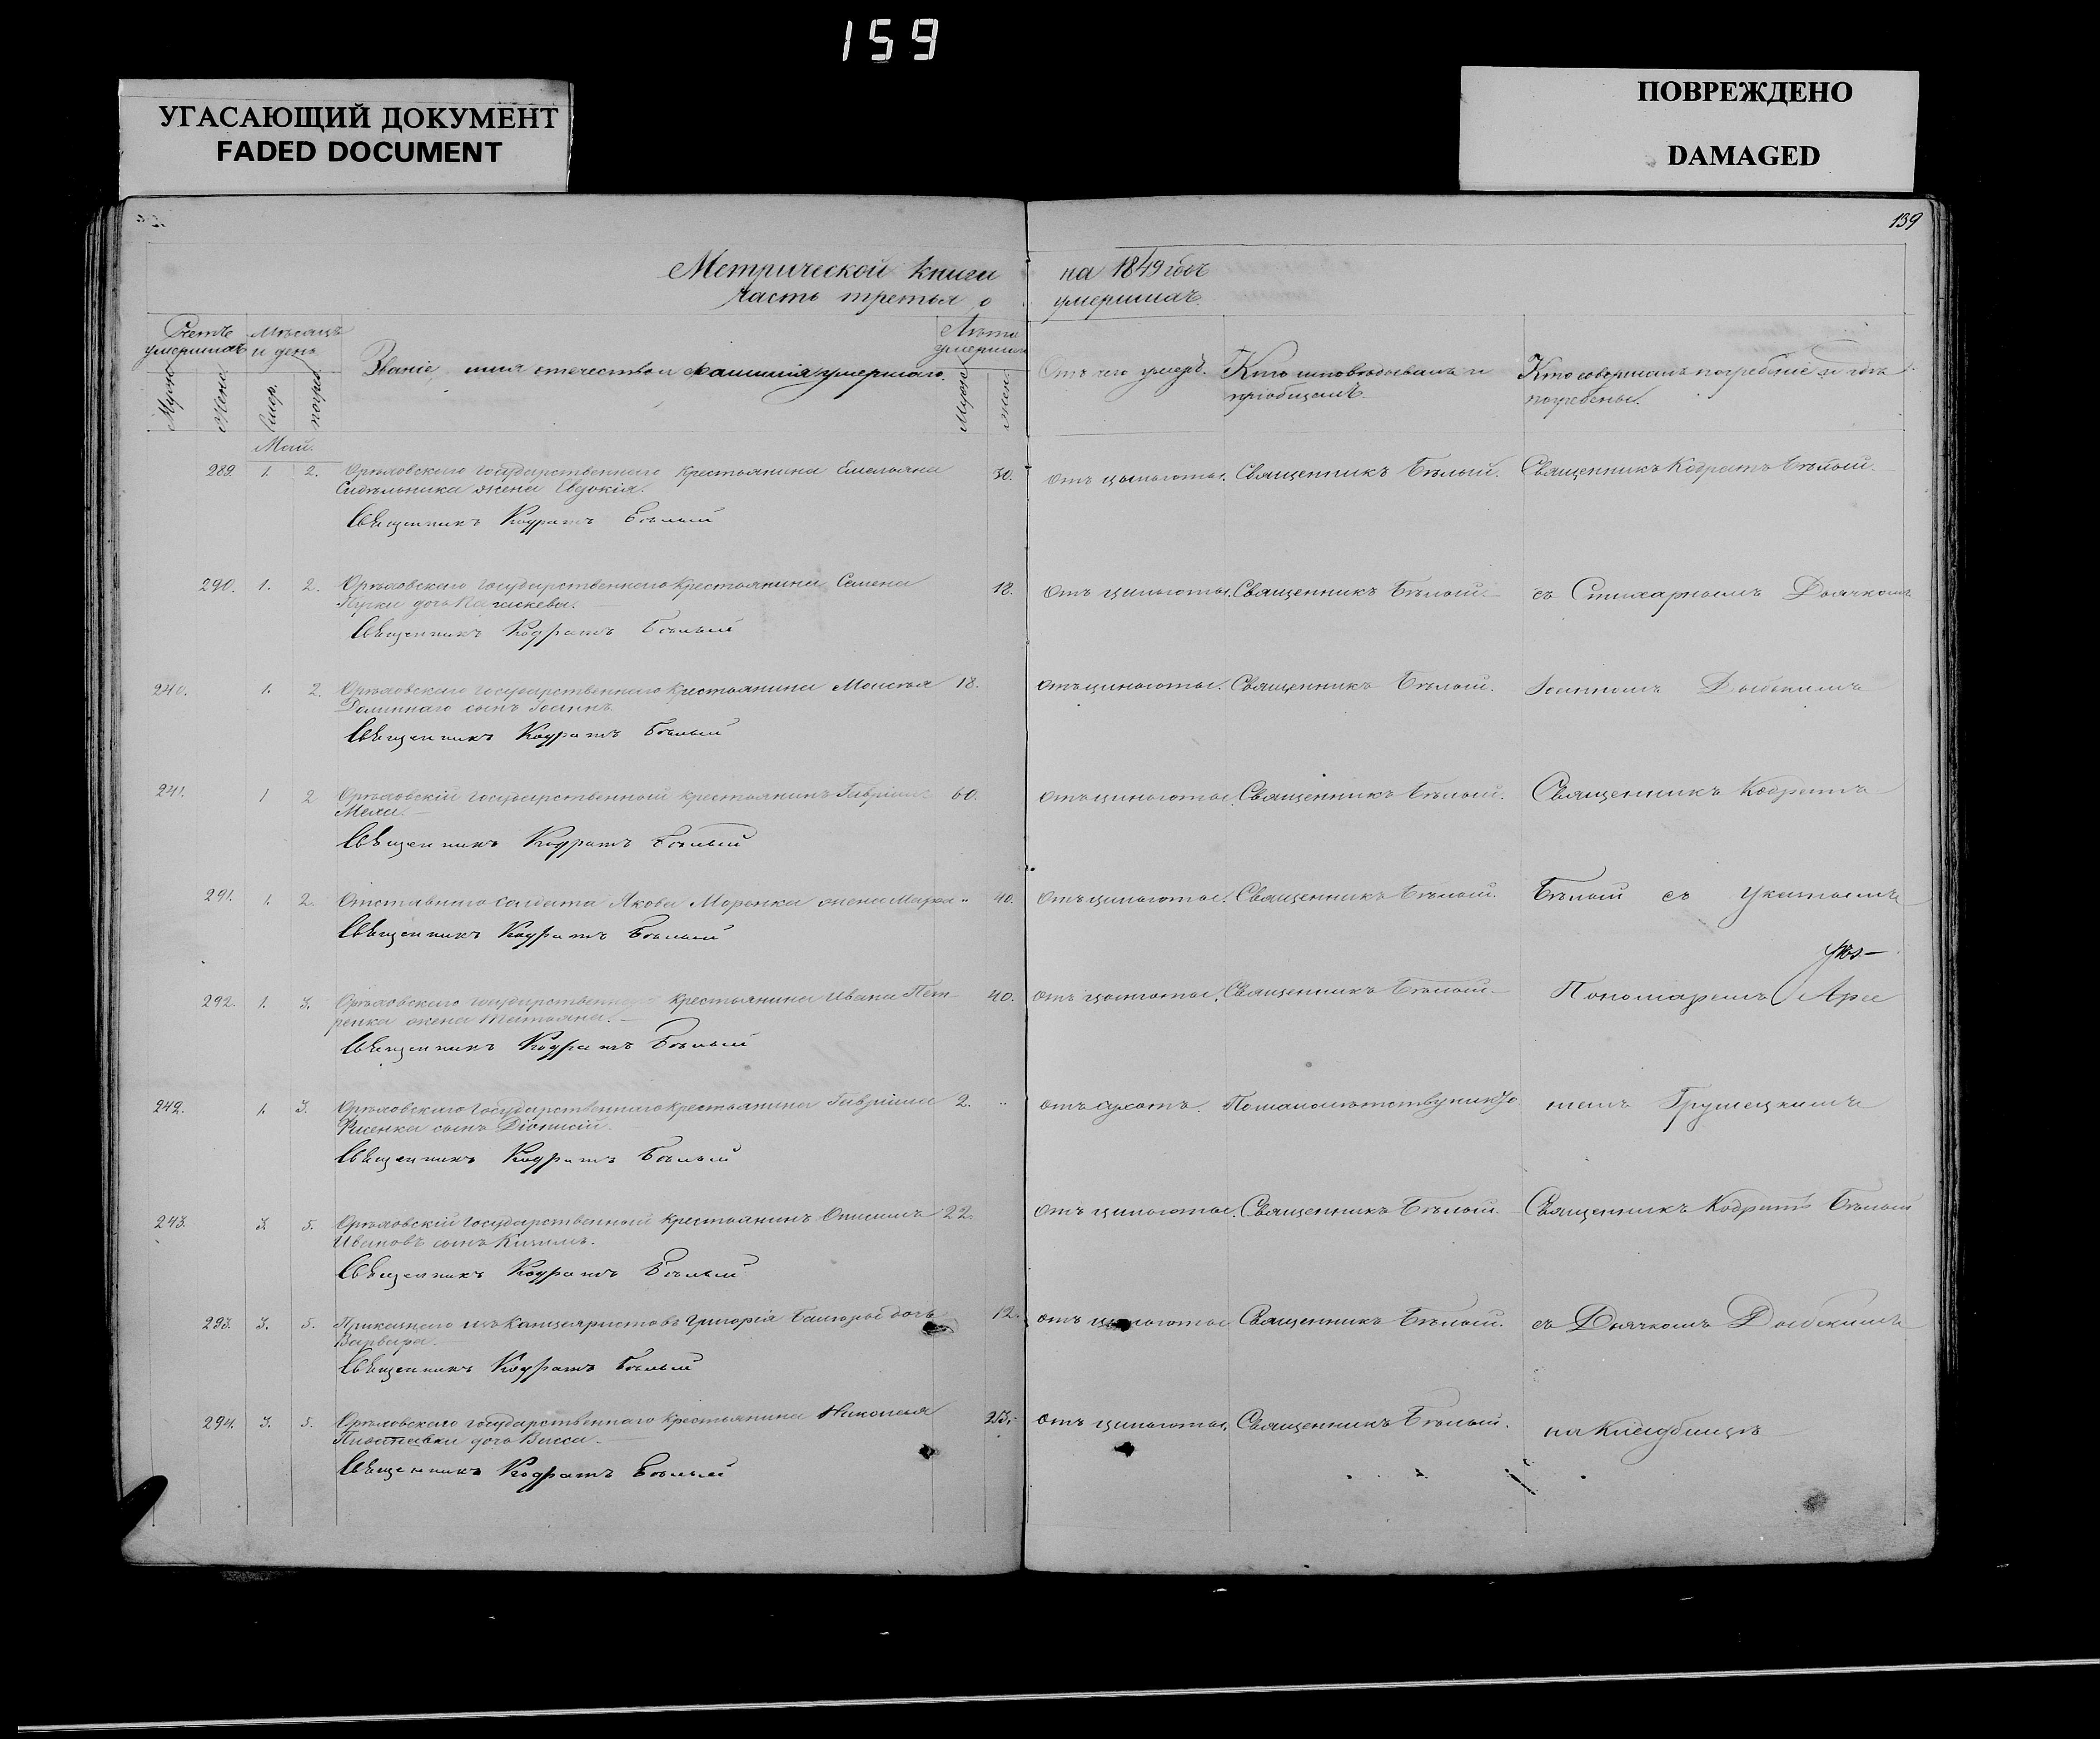 159
УГАСАЮЩИЙ ДОКУМЕНТ
FADED DOCUMENT
ПОВРЕЖДЕНО
DAMAGED
139
Метрической книги на 1849 годъ
часть третья о умершихъ.
Счетъ умершихъ
Мѣсяцъ и день
Званіе, имя отчество и фамилія умершаго.
Лѣта умершаго
Отъ чего умеръ.
Кто исповѣдовалъ и пріобщалъ.
Кто совершалъ погребеніе и гдѣ погребены.
Муж. Жен.
Май.
289. 1. 2. Орѣховскаго государственнаго крестьянина Емельяна 30. отъ цынготы. Священникъ Бѣлый. Священникъ Кодратъ Бѣлый
жена Евдокія.
Священникъ Кодратъ Бѣлый
290. 1. 2. Орѣховскаго государственнаго крестьянина Семена 18. отъ цынготы. Священникъ Бѣлый съ Стихарнымъ Дьячкомъ
дочь
Священникъ Кодратъ Бѣлый
240. 1. 2. Орѣховскаго государственнаго крестьянина Моисея 18. отъ цынготы. Священникъ Бѣлый. Іоанномъ
сынъ Іоаннъ.
Священникъ Кодратъ Бѣлый
241. 1 2 Орѣховскій государственный крестьянинъ Гавріилъ 60. отъ цынготы. Священникъ Бѣлый. Священникъ Кодратъ
Священникъ Кодратъ Бѣлый
291. 1. 2. Отставнаго солдата Якова Моренка жена Марѳа 40. отъ цынготы. Священникъ Бѣлый. Бѣлый съ Указнымъ
Священникъ Кодратъ Бѣлый
292. 1. 3. Орѣховскаго государственнаго крестьянина Ивана Пет- 40. отъ цынготы. Священникъ Бѣлый Пономаремъ
ренка жена Татьяна.
Священникъ Кодратъ Бѣлый
242. 1. 3. Орѣховскаго государственнаго крестьянина Гавріила 2. отъ сухотъ. Грушецкимъ
сынъ Діонисій
Священникъ Кодратъ Бѣлый
243. 3. 5. Орѣховскій государственный крестьянинъ Онисимъ 22. отъ цынготы. Священникъ Бѣлый Священникъ Кодратъ Бѣлый
Ивановъ сынъ
Священникъ Кодратъ Бѣлый
293. 3. 5. Григорія дочь 12. отъ цынготы Священникъ Бѣлый. съ Дьячкомъ
Варвара.
Священникъ Кодратъ Бѣлый
294. 3. 5. Орѣховскаго государственнаго крестьянина Николая 23. отъ цынготы. Священникъ Бѣлый. на Кладбищѣ
дочь Васса.
Священникъ Кодратъ Бѣлый